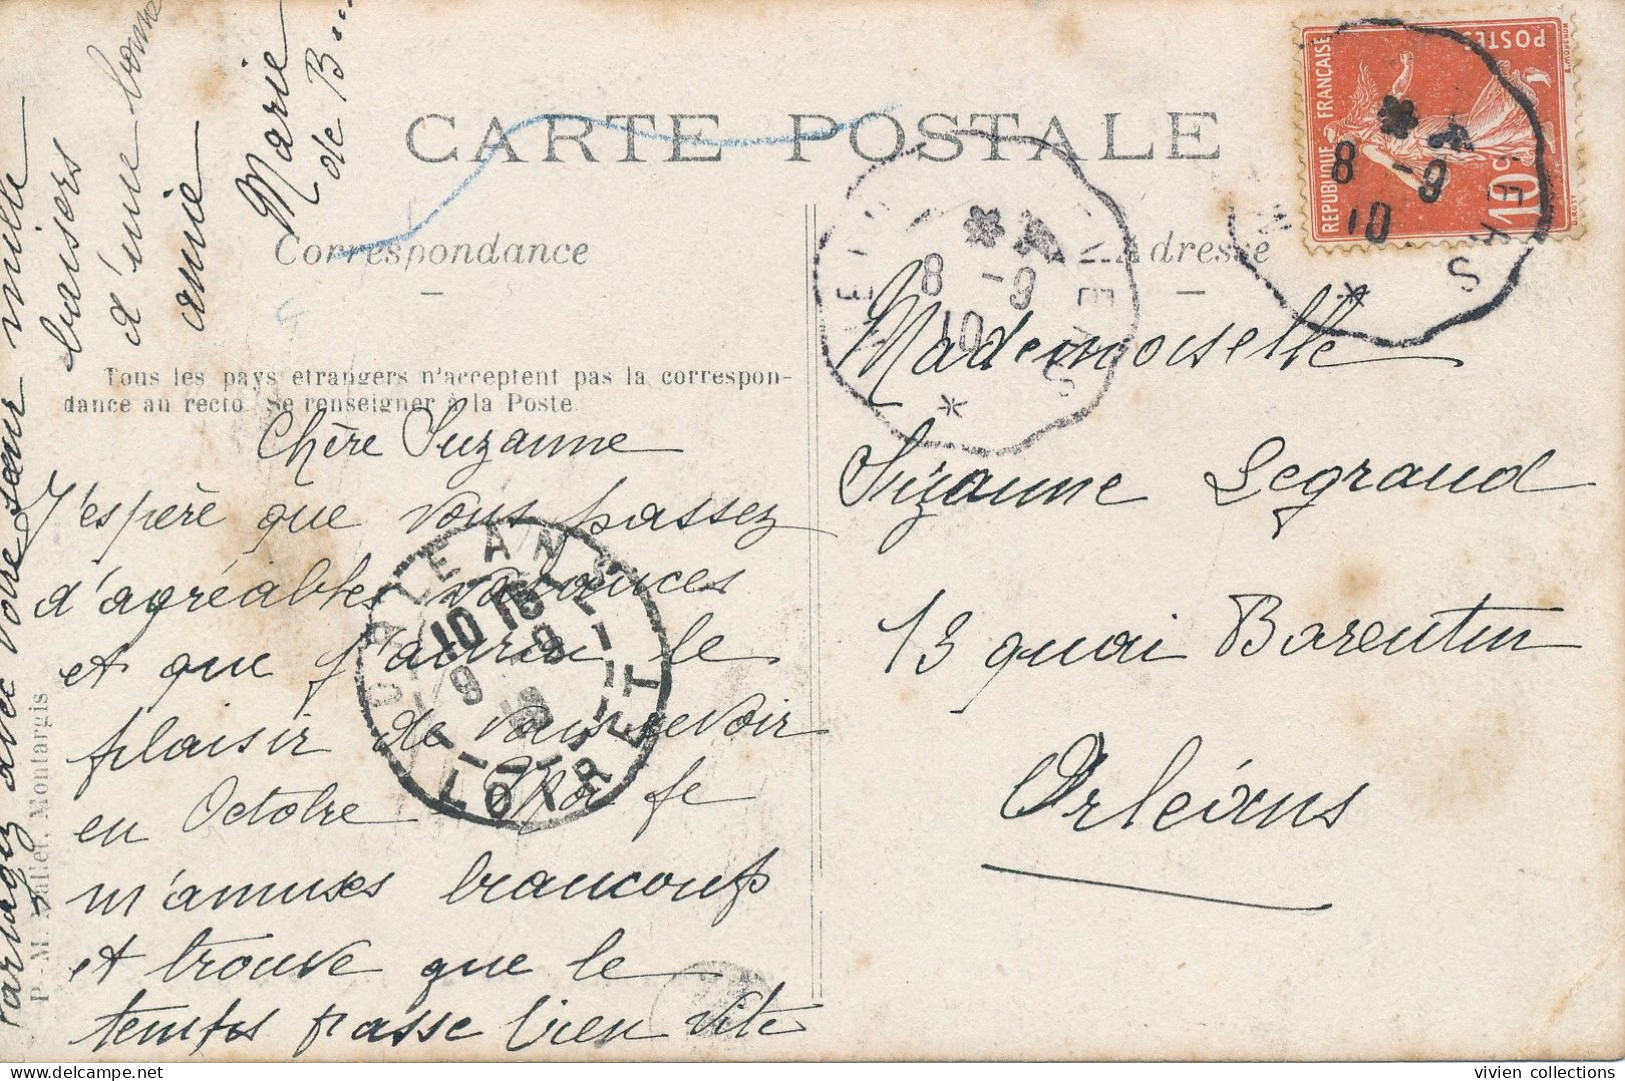 CARTE POSTALE
Correspondance
Adresse
Tous les pays etrangers n'acceptent pas la correspon-
dance au recto. Se renseigner à la Poste
Chère Suzanne
J'espère que vous passez
d'agréables vacances
et que j'aurai le
plaisir de vous revoir
en Octobre Moi je
m'amuses beaucoup
et trouve que le
temps passe bien vite
Partagez avec votre sœur mille
baisers
d'une bonne
amie
Marie
de B...
Mademoiselle
Suzanne Legrand
13 quai Barentin
Orléans
P.-M. Mallet, Montargis
REPUBLIQUE FRANÇAISE
POSTES
10c
8 -9
10
8 -9
10
NEVERS
ORLEANS
10 15
9 - 9
LOIRET
vivien collections